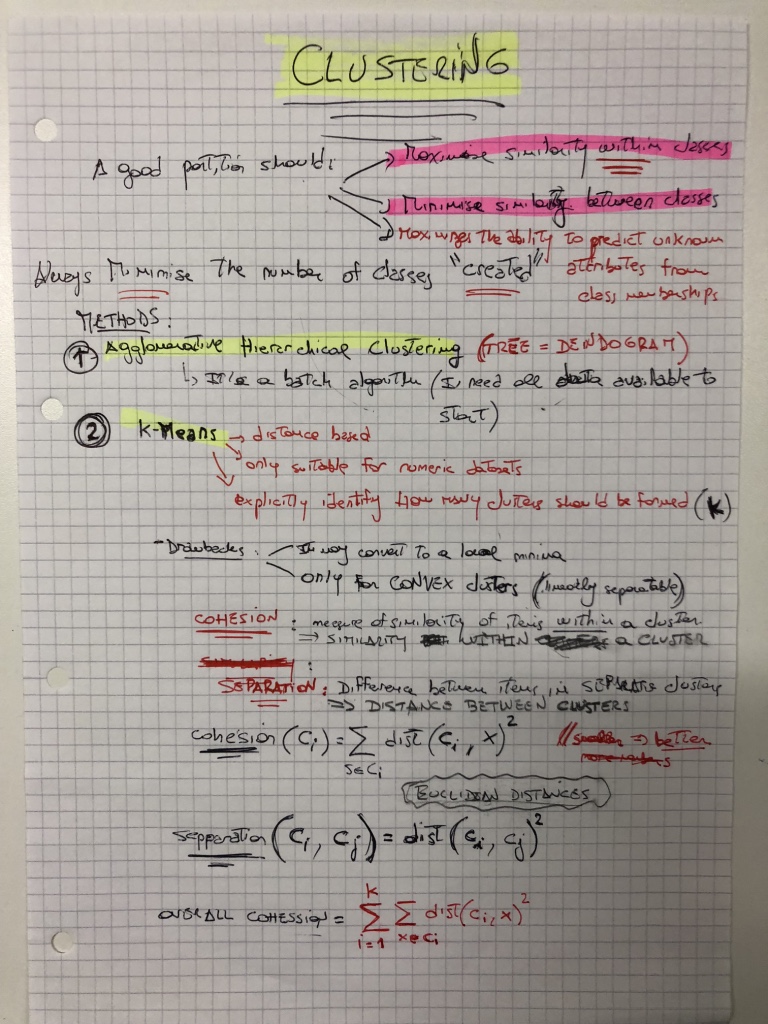 CLUSTERING
A good partition should:
→ Maximise similarity within classes
→ Minimise similarity between classes
→ Maximizes the ability to predict unknown
attributes from
class memberships
Always Minimise the number of classes "created"
METHODS:
① Agglomerative Hierarchical Clustering (TREE = DENDOGRAM)
↳ It's a batch algorithm (I need all data available to
start)
② K-Means → distance based
→ only suitable for numeric datasets
→ explicitly identify how many clusters should be formed (K)
- Drawbacks: It may convert to a local minima
only for CONVEX clusters (linearly separatable)
COHESION: measure of similarity of items within a cluster
⇒ SIMILARITY WITHIN a CLUSTER
:
SEPARATION: Difference between items in SEPARATE clusters
⇒ DISTANCE BETWEEN CLUSTERS
Cohesion (Ci) = ∑ dist (ci, x)²
S∈Ci
// smaller ⇒ better
EUCLIDEAN DISTANCES
Sepperation (Ci, Cj) = dist (ci, cj)²
OVERALL COHESSION = ∑ ∑ dist(ci, x)²
K
i=1 x∈Ci